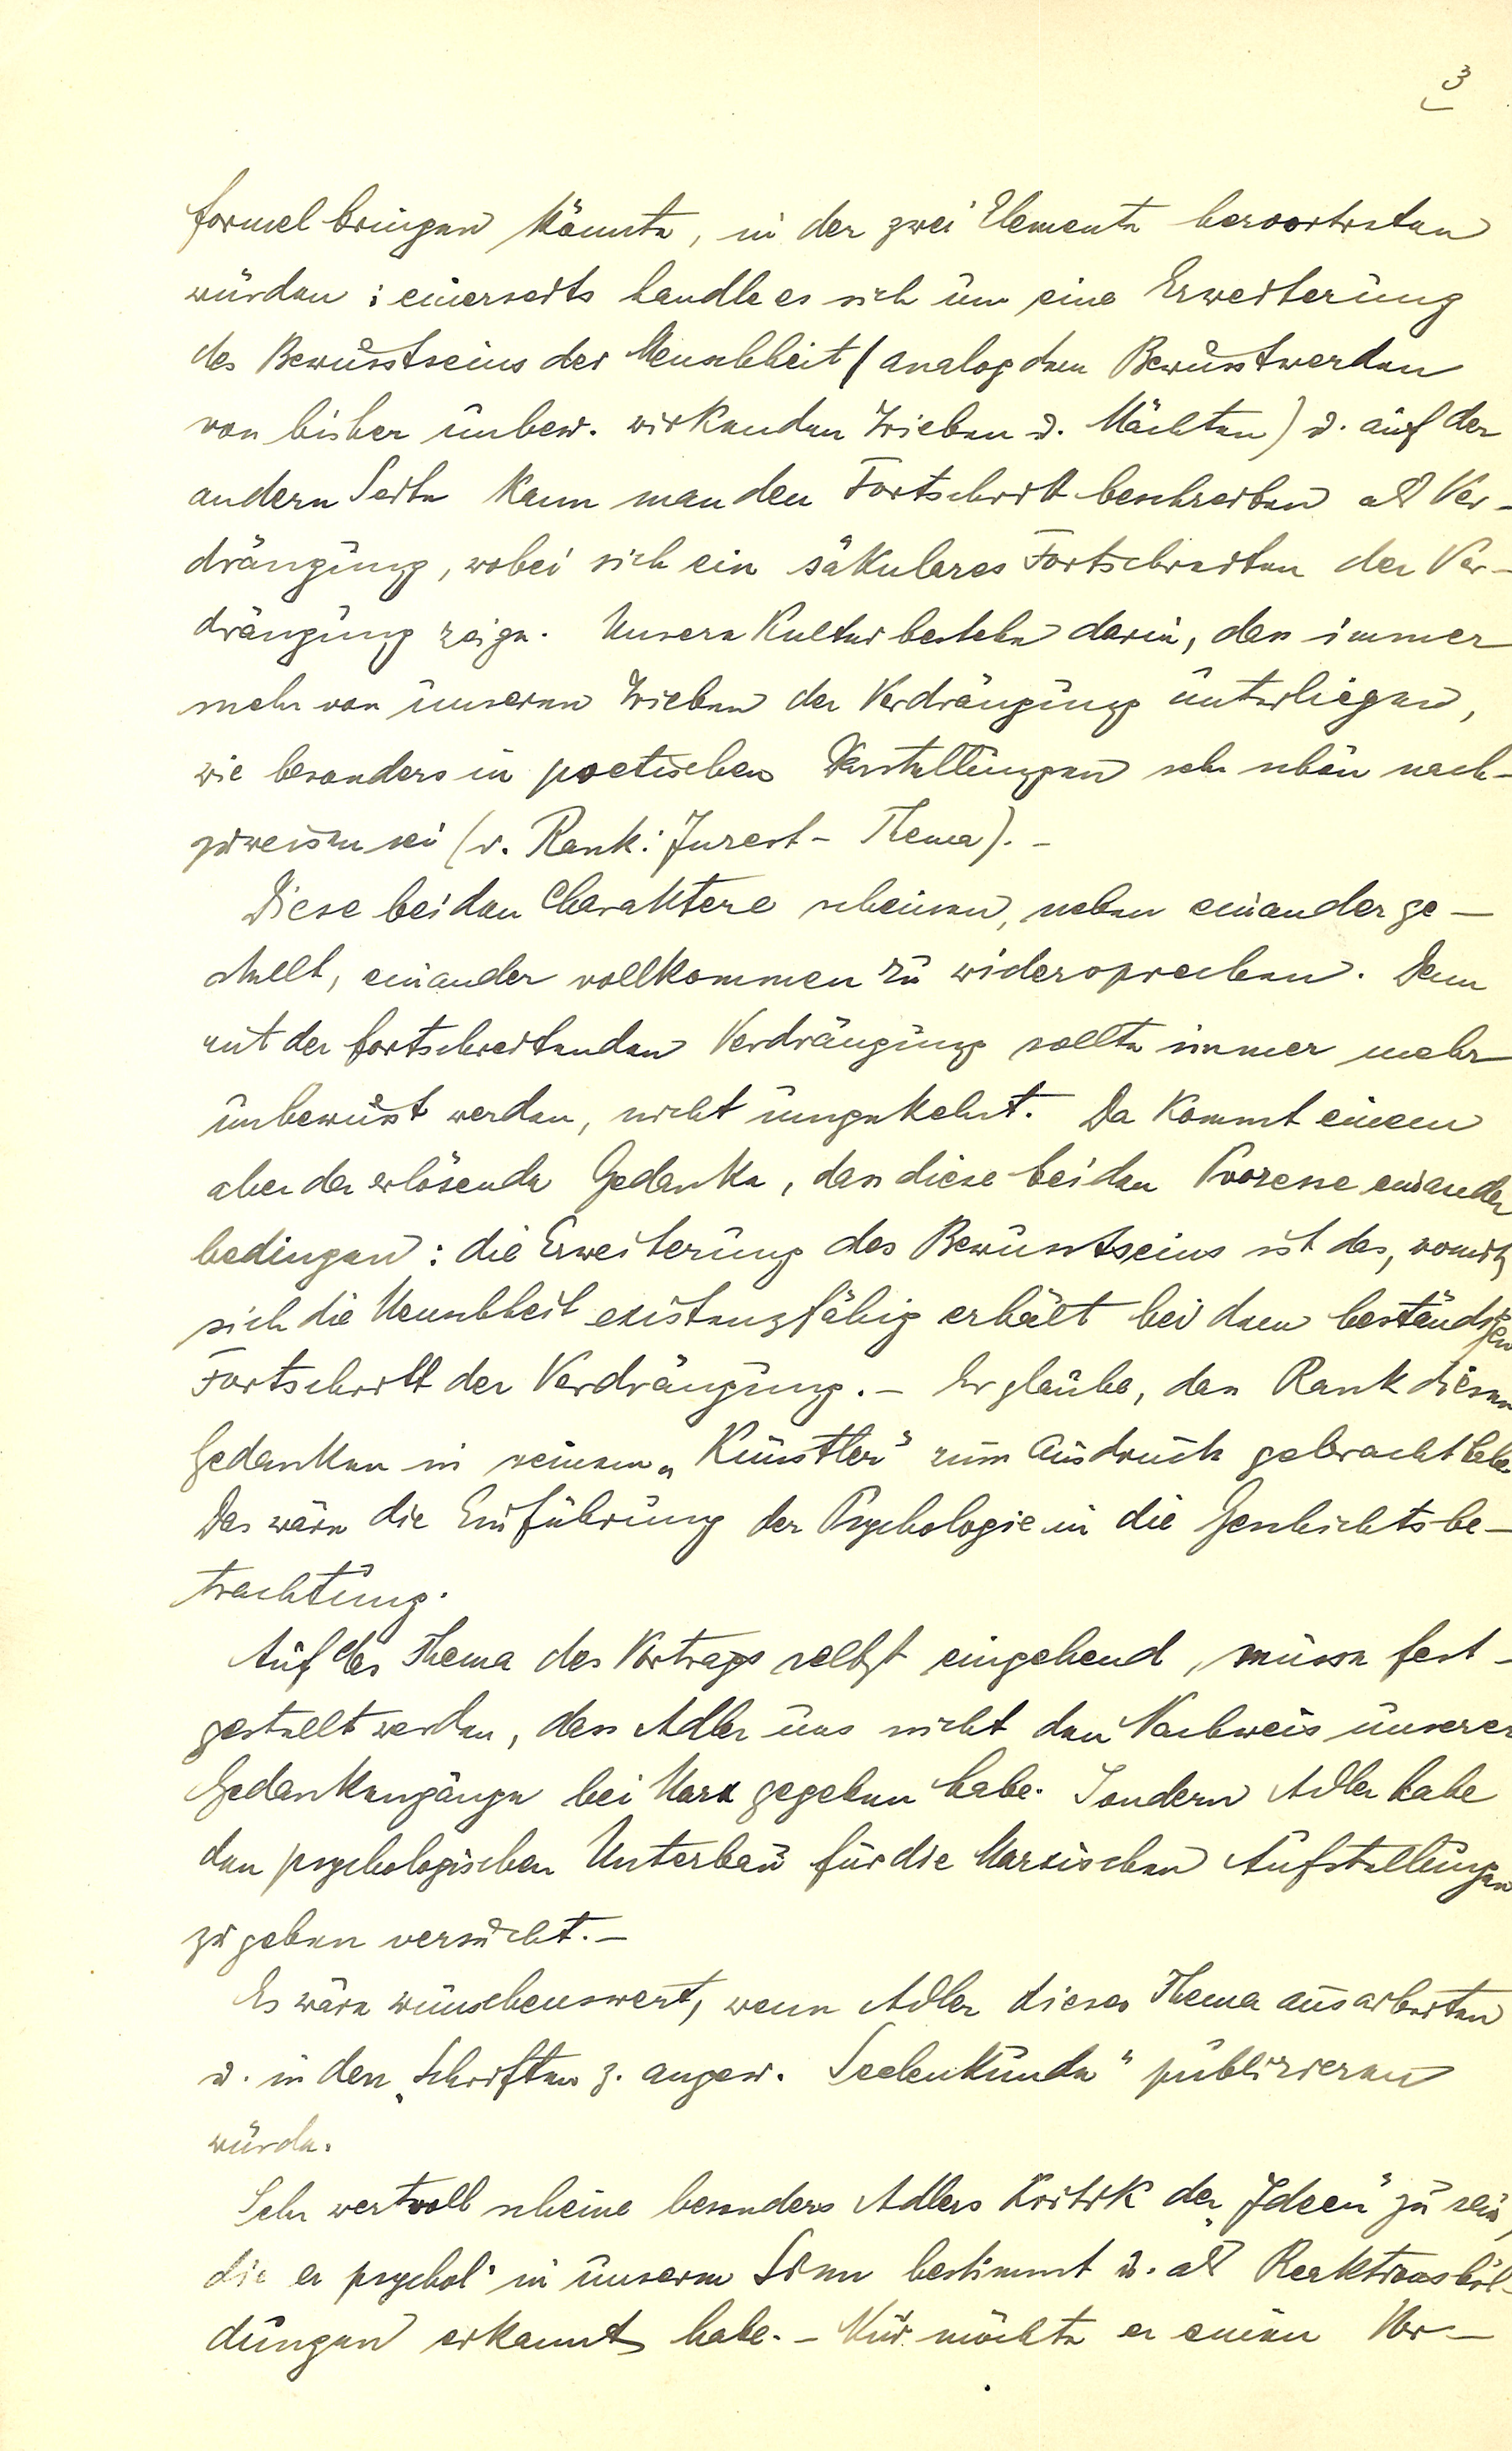 3
formel bringen könnte, in der zwei Elemente hervortreten
würden: einerseits handle es sich um eine Erweiterung
des Bewusstseins der Menschheit (analog dem Bewusstwerden
von bisher unbew. wirkenden Trieben u. Mächten) u. auf der
andern Seite kann man den Fortschritt beschreiben als Ver-
drängung, wobei sich ein säkulares Fortschreiten der Ver-
drängung zeige. Unsere Kultur bestehe darin, dass immer
mehr von unseren Trieben der Verdrängung unterliegen,
wie besonders in poetischen Darstellungen sehr schön nach-
zuweisen sei (v. Rank: Inzest-Thema). -
Diese beiden Charaktere scheinen, neben einander ge-
stellt, einander vollkommen zu widersprechen. Denn
mit der fortschreitenden Verdrängung sollte immer mehr
unbewusst werden, nicht umgekehrt. Da kommt einem
aber der erlösende Gedanke, dass diese beiden Prozesse einander
bedingen: die Erweiterung des Bewusstseins ist das, womit
sich die Menschheit existenzfähig erhält bei dem beständigen
Fortschritt der Verdrängung. - Er glaube, dass Rank diesen
Gedanken in seinem „Künstler" zum Ausdruck gebracht habe
Das wäre die Einführung der Psychologie in die Geschichtsbe-
trachtung.
Auf das Thema des Vortrags selbst eingehend, müsse fest-
gestellt werden, dass Adler uns nicht den Nachweis unserer
Gedankengänge bei Marx gegeben habe. Sondern Adler habe
den psychologischen Unterbau für die Marxischen Aufstellungen
zu geben versucht. -
Es wäre wünschenswert, wenn Adler dieses Thema ausarbeiten
u. in den „Schriften z. angew. Seelenkunde" publizieren
würde.
Sehr wertvoll scheine besonders Adlers Kritik der „Ideen" zu sein,
die er psychol. in unserem Sinn bestimmt u. als Reaktionsbil-
dungen erkannt habe. - Nur möchte er einen Vor-